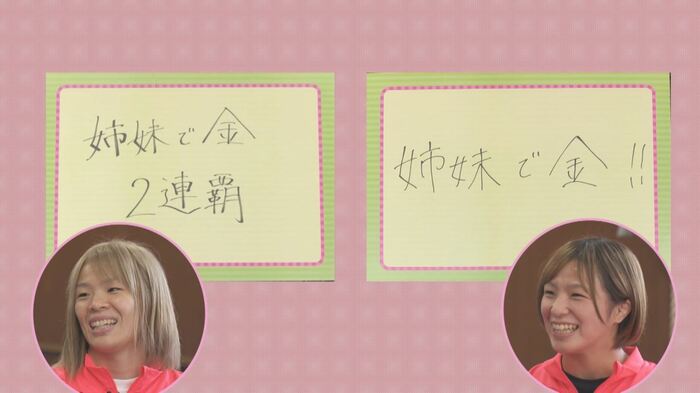 姉妹で金
2連覇
姉妹で金!!